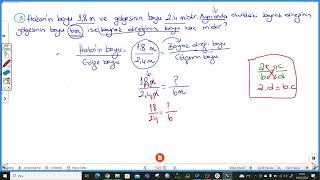 ③ Hakan'ın boyu 1,8 m ve gölgesinin boyu 2,4 m'dir. Aynı anda okuldaki bayrak direğinin
gölgesinin boyu 6m ise bayrak direğinin boyu kaç m'dir?
Hakan'ın boyu / Gölge boyu = 1,8 m / 2,4 m = Bayrak direği boyu / Gölgenin boyu
1,8 m / 2,4 m = ? / 6m
18 / 24 = ? / 6
a c
b d
a.d = b.c